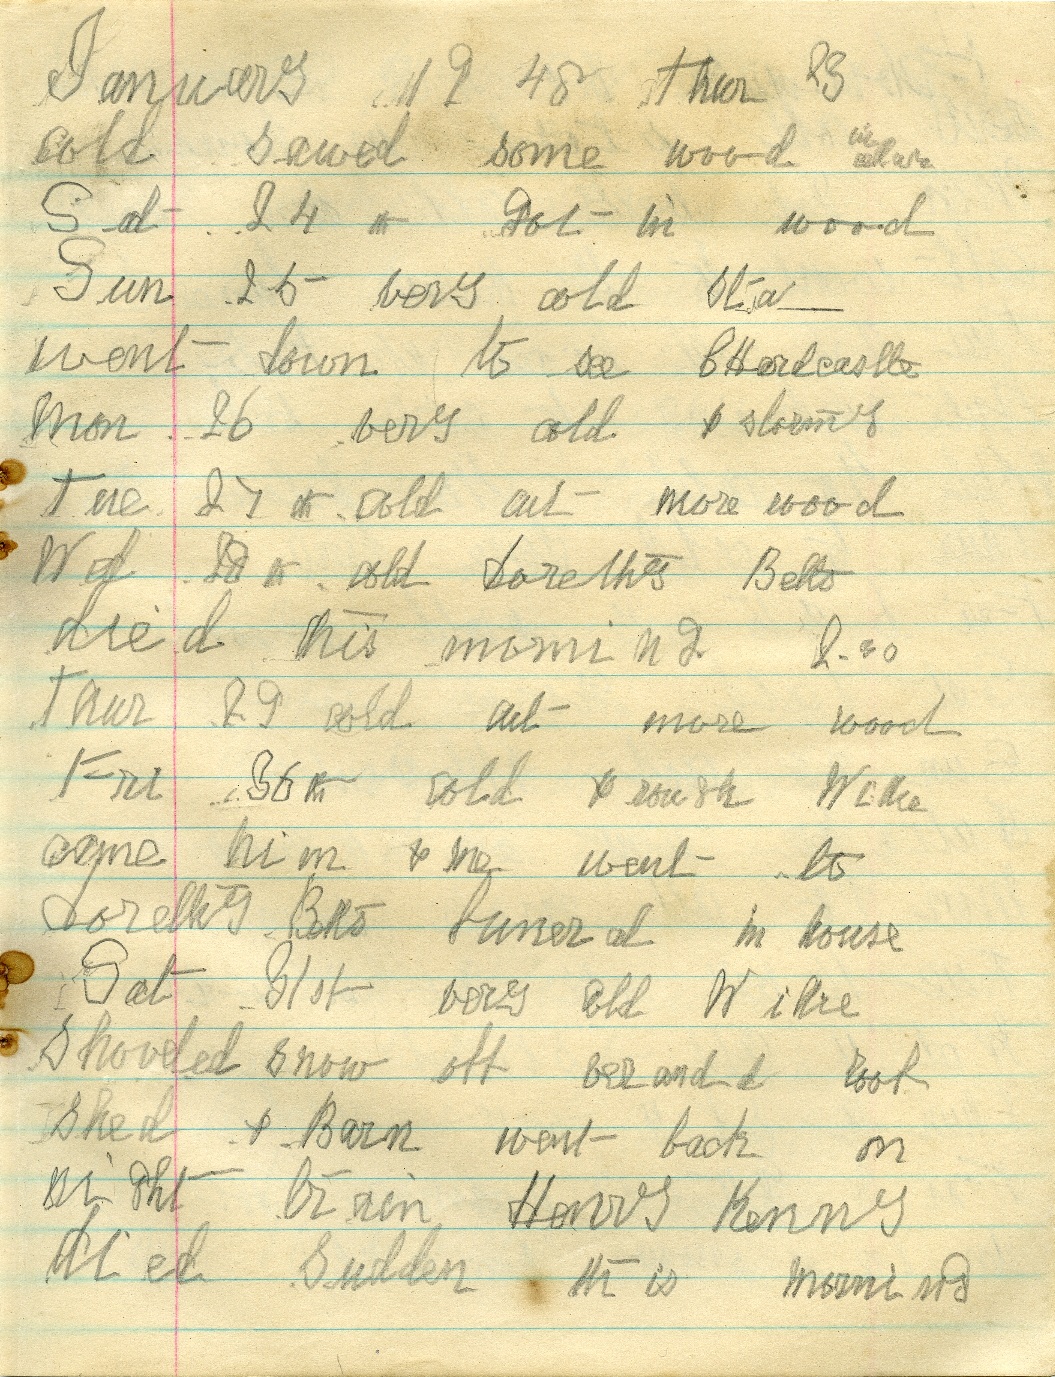 January 1948 thur 23
cold sawed some wood in
Sat 24th Got in wood
Sun 25 very cold Sta
went down to see C Hardcastle
Mon 26 very cold & stormy
Tue 27th cold cut more wood
Wd 28th cold Dorethy Betts
died this morning
Thur 29 cold cut more wood
Fri 30th cold & rough Wilke
came him & me went to
Dorethy Betts funeral in house
Sat 31st very cold Wilke
shoveled snow off verandd roof
shed & Barn went back on
night train Henry Kenny
died Sudden this morning